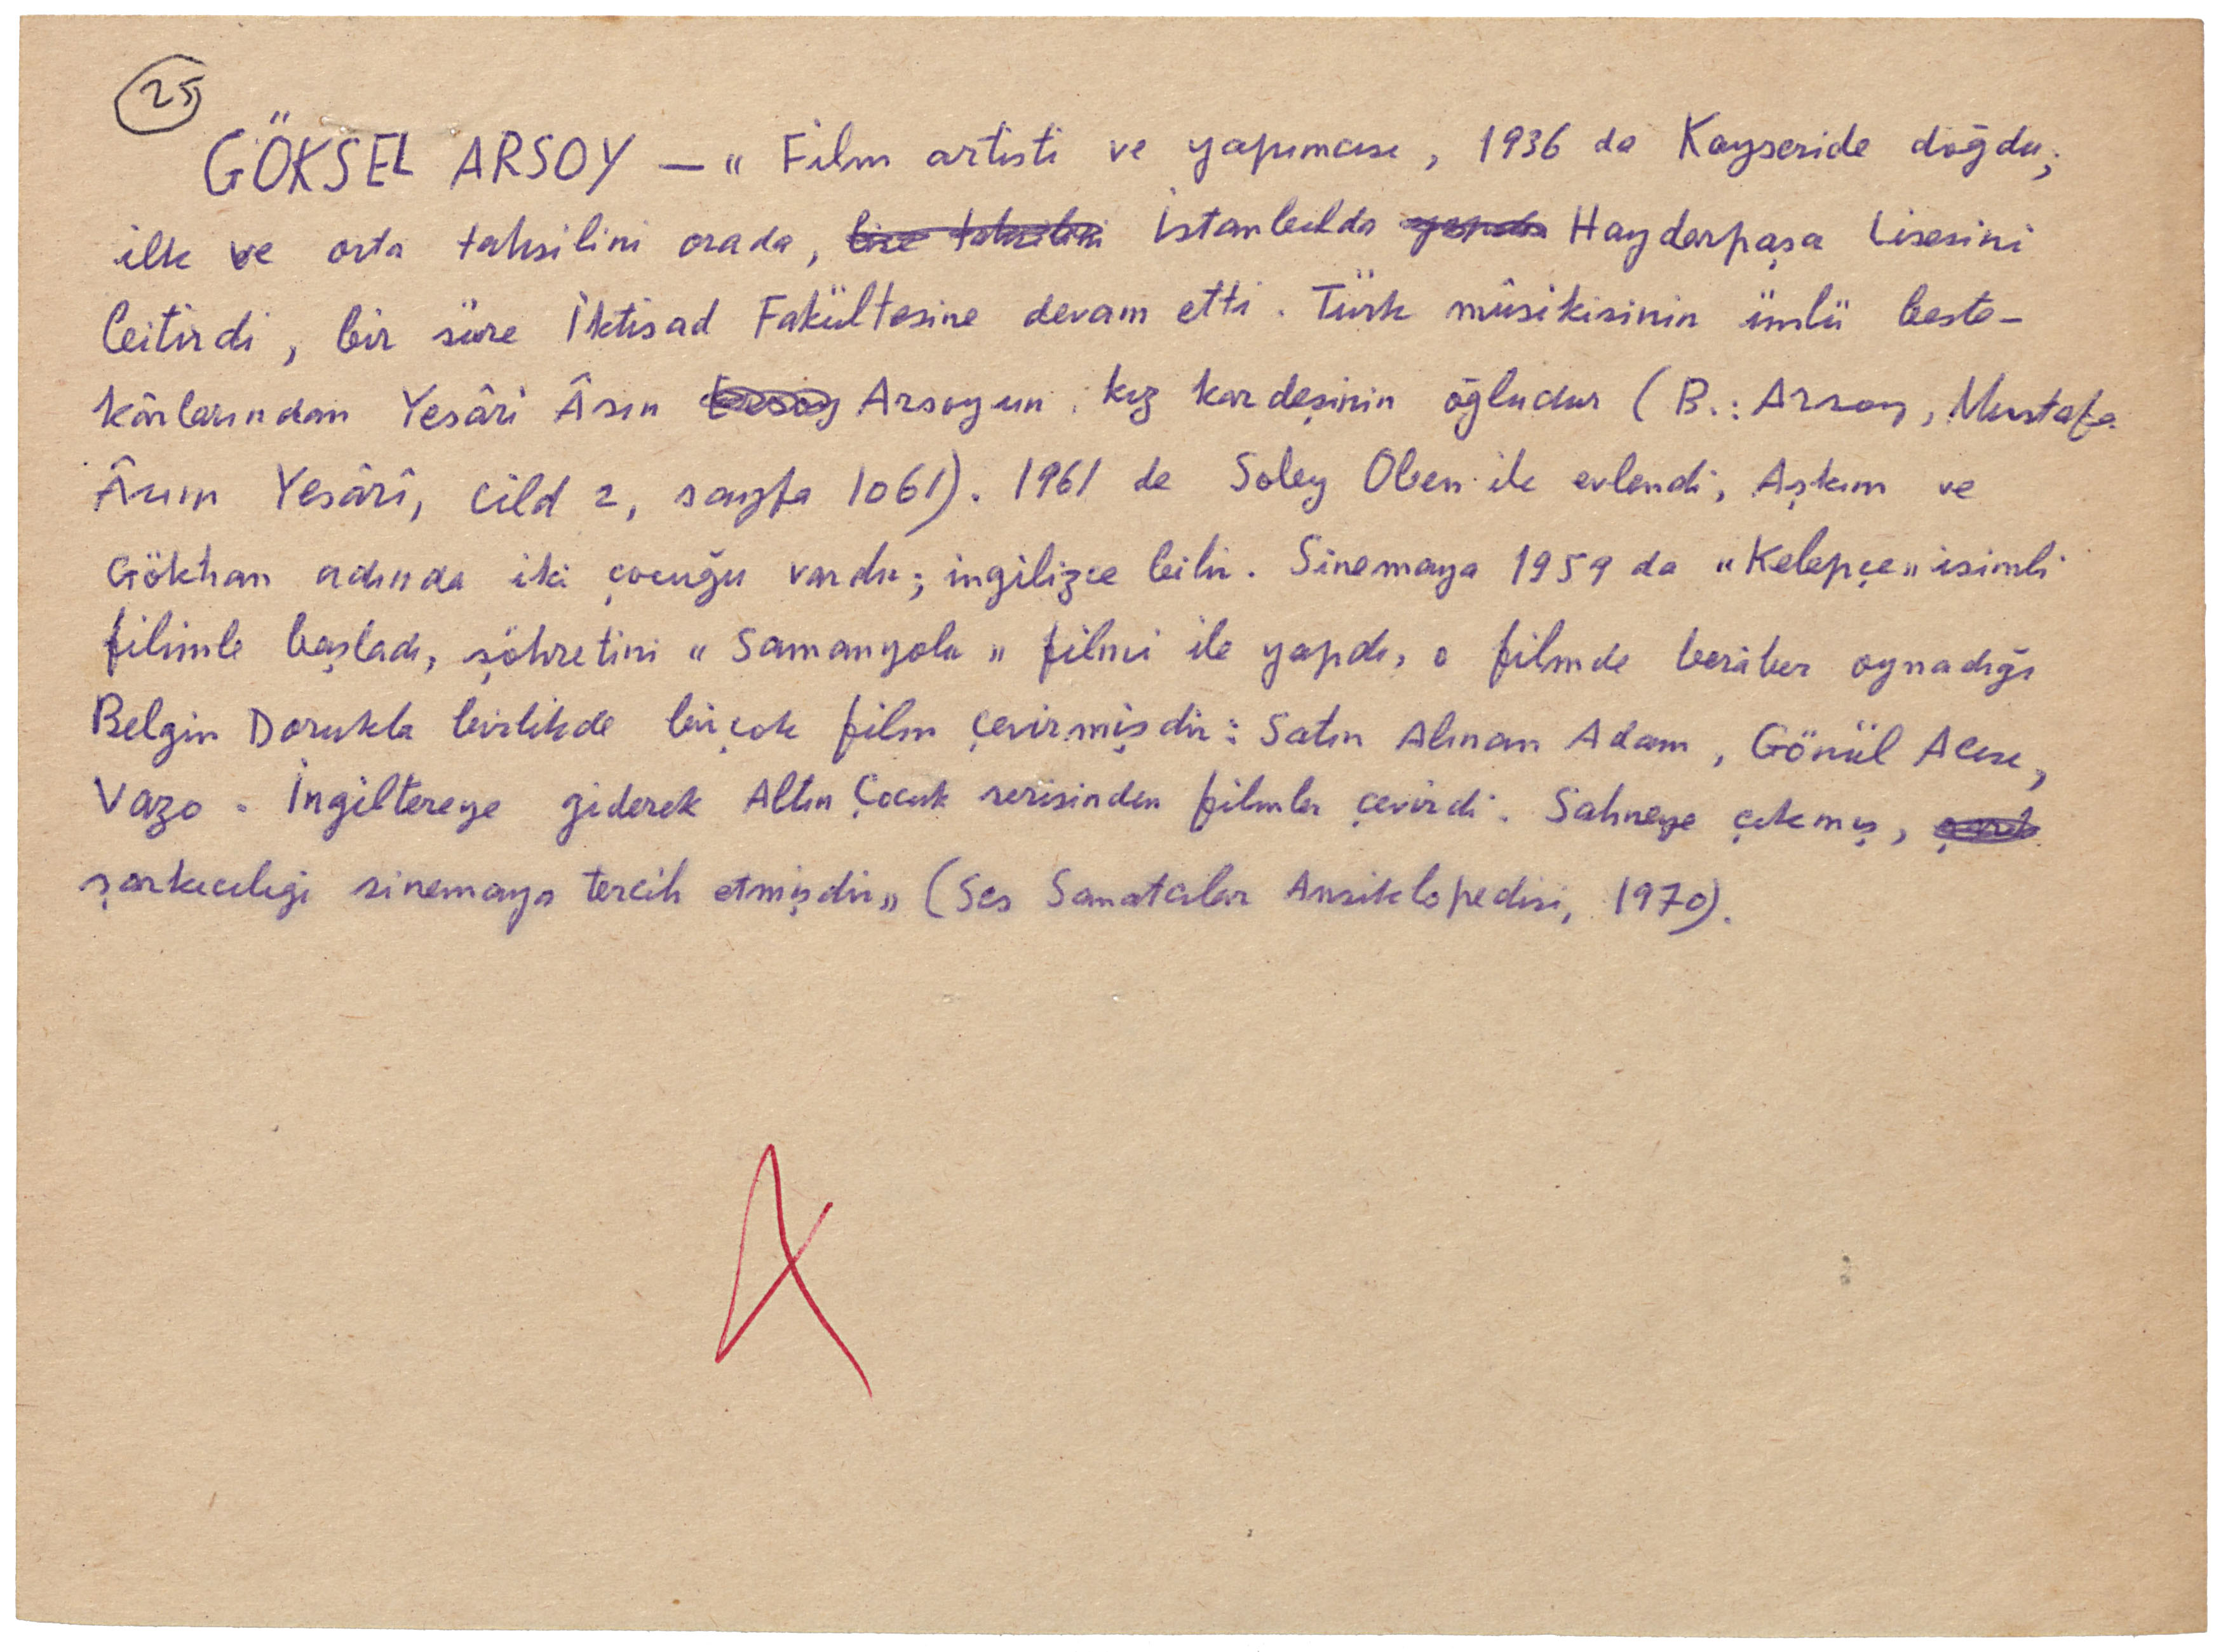 25
GÖKSEL ARSOY — "Film artisti ve yapımcısı, 1936 da Kayseride doğdu;
ilk ve orta tahsilini orada, lise tahsilini İstanbulda Haydarpaşa Lisesini
bitirdi, bir süre İktisad Fakültesine devam etti. Türk mûsikisinin ünlü beste-
kârlarından Yesâri Âsım Ersoy Arsoyun kız kardeşinin oğludur (B.: Arsoy, Mustafa
Âsım Yesârî, cild 2, sayfa 1061). 1961 de Soley Oben ile evlendi, Aşkım ve
Gökhan adında iki çocuğu vardır; ingilizce bilir. Sinemaya 1959 da "Kelepçe" isimli
filimle başladı, şöhretini "Samanyolu" filmi ile yapdı, o filmde berâber oynadığı
Belgin Dorukla birlikde birçok film çevirmişdir: Satın Alınan Adam, Gönül Acısı,
Vazo. İngiltereye giderek Altın Çocuk serisinden filmler çevirdi. Sahneye çıkmış,
şarkıcılığı sinemaya tercih etmişdir" (Ses Sanatcılar Ansiklopedisi, 1970).